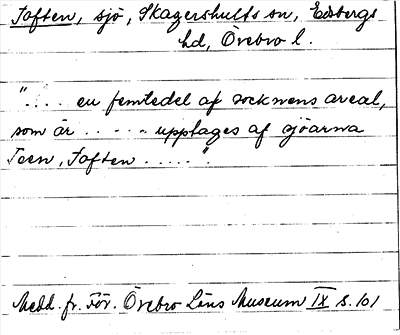 Toften, sjö, Skagershults sn, Edsbergs
hd, Örebro l.
"... en femtedel af socknens areal,
som är ..... upptages af sjöarna
Teen, Toften ....."
Medd. fr. För. Örebro Läns Museum IX s. 101